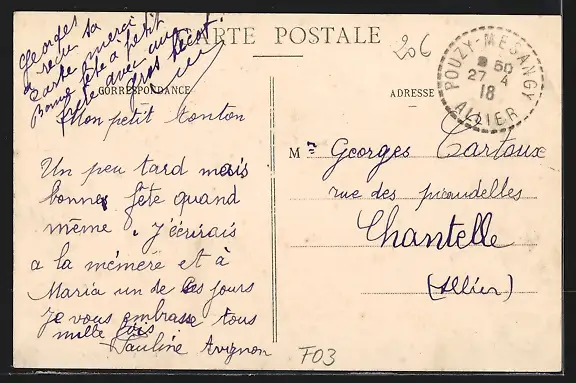 Georges
a reçu ta
carte merci
Bonne fête à petit
frère avec un
gros bécot
CARTE POSTALE
206
CORRESPONDANCE
ADRESSE
POUZY-MESANGY
27 4
18
ALLIER
Mon petit tonton
Un peu tard mais
bonne fête quand
même. J'écrirais
a la mémère et à
Maria un de ces jours
Je vous embrasse tous
mille fois
Pauline Avignon
Mr Georges Cartoux
rue des
Chantelle
(Allier)
F03